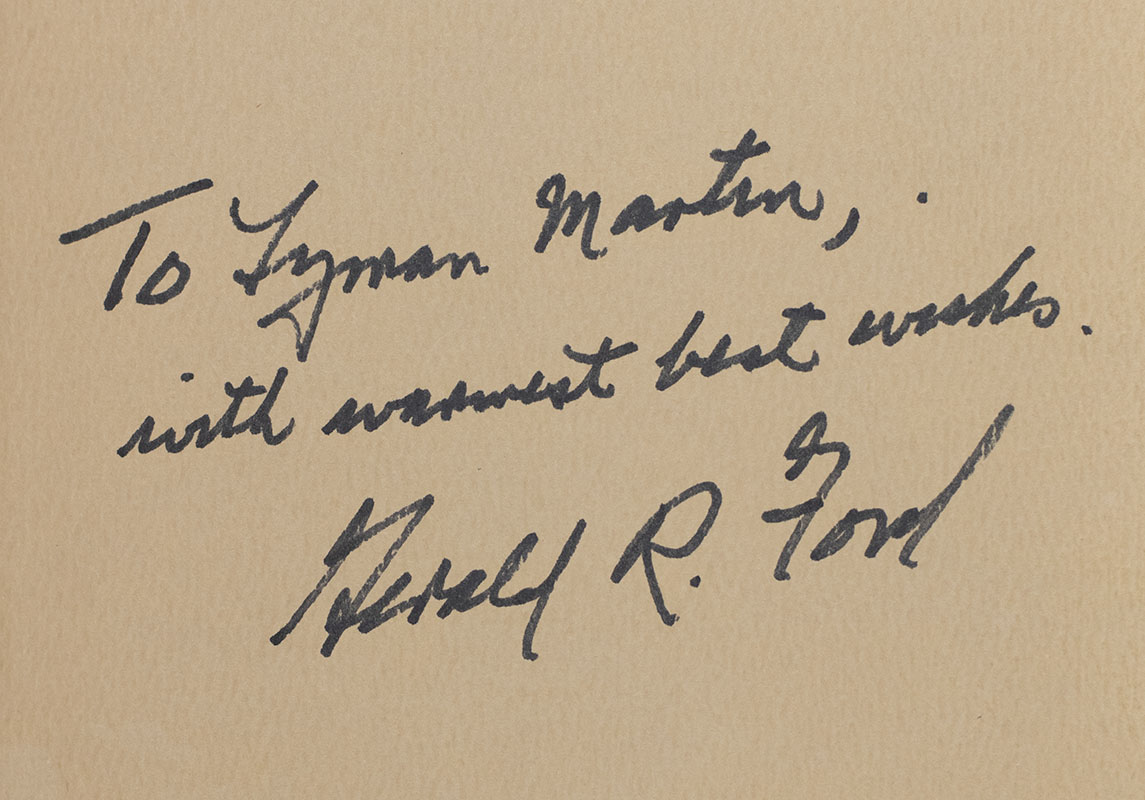 To Lyman Martin,
with warmest best wishes.
Gerald R. Ford